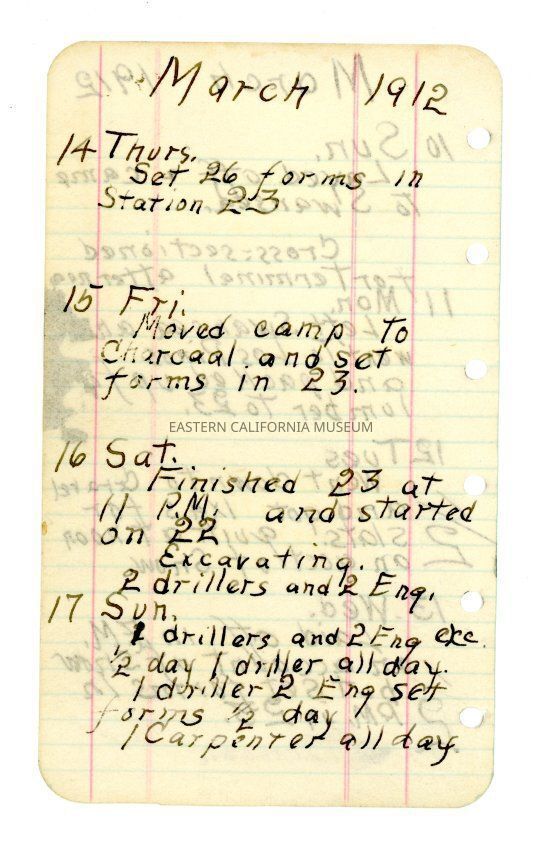 March 1912
14 Thurs.
Set 26 forms in
Station 23
15 Fri.
Moved camp To
Charcoal and set
forms in 23.
EASTERN CALIFORNIA MUSEUM
16 Sat.
Finished 23 at
11 P.M. and started
on 22
Excavating.
2 drillers and 2 Eng.
17 Sun.
1 drillers and 2 Eng exc.
1/2 day 1 driller all day.
1 driller 2 Eng set
forms 1/2 day
1 Carpenter all day